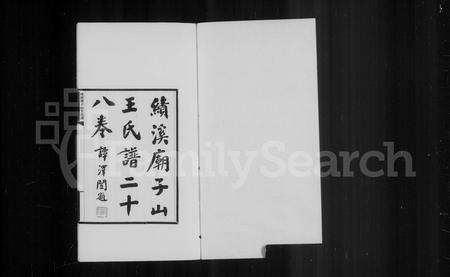 績溪廟子山
王氏譜二十
八卷譚澤闓題
FamilySearch